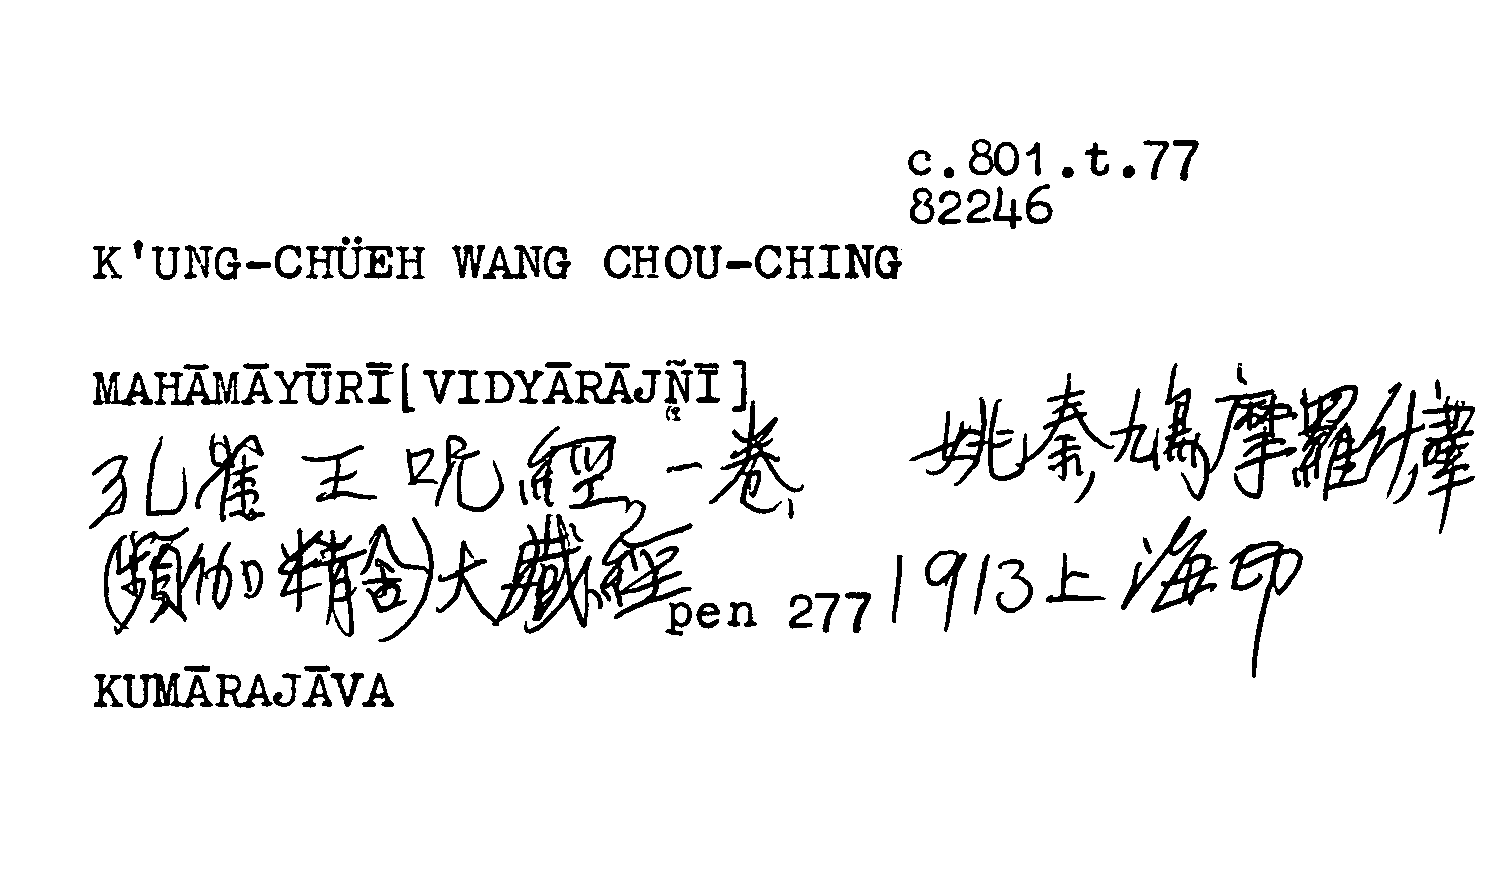 c.801.t.77
82246
K'UNG-CHÜEH WANG CHOU-CHING
MAHĀMĀYŪRĪ[VIDYĀRĀJÑĪ]
孔雀王呪經,一卷, 姚秦鳩摩羅什譯
(頻伽精舍)大藏經pen 277 1913上海印
KUMĀRAJĀVA